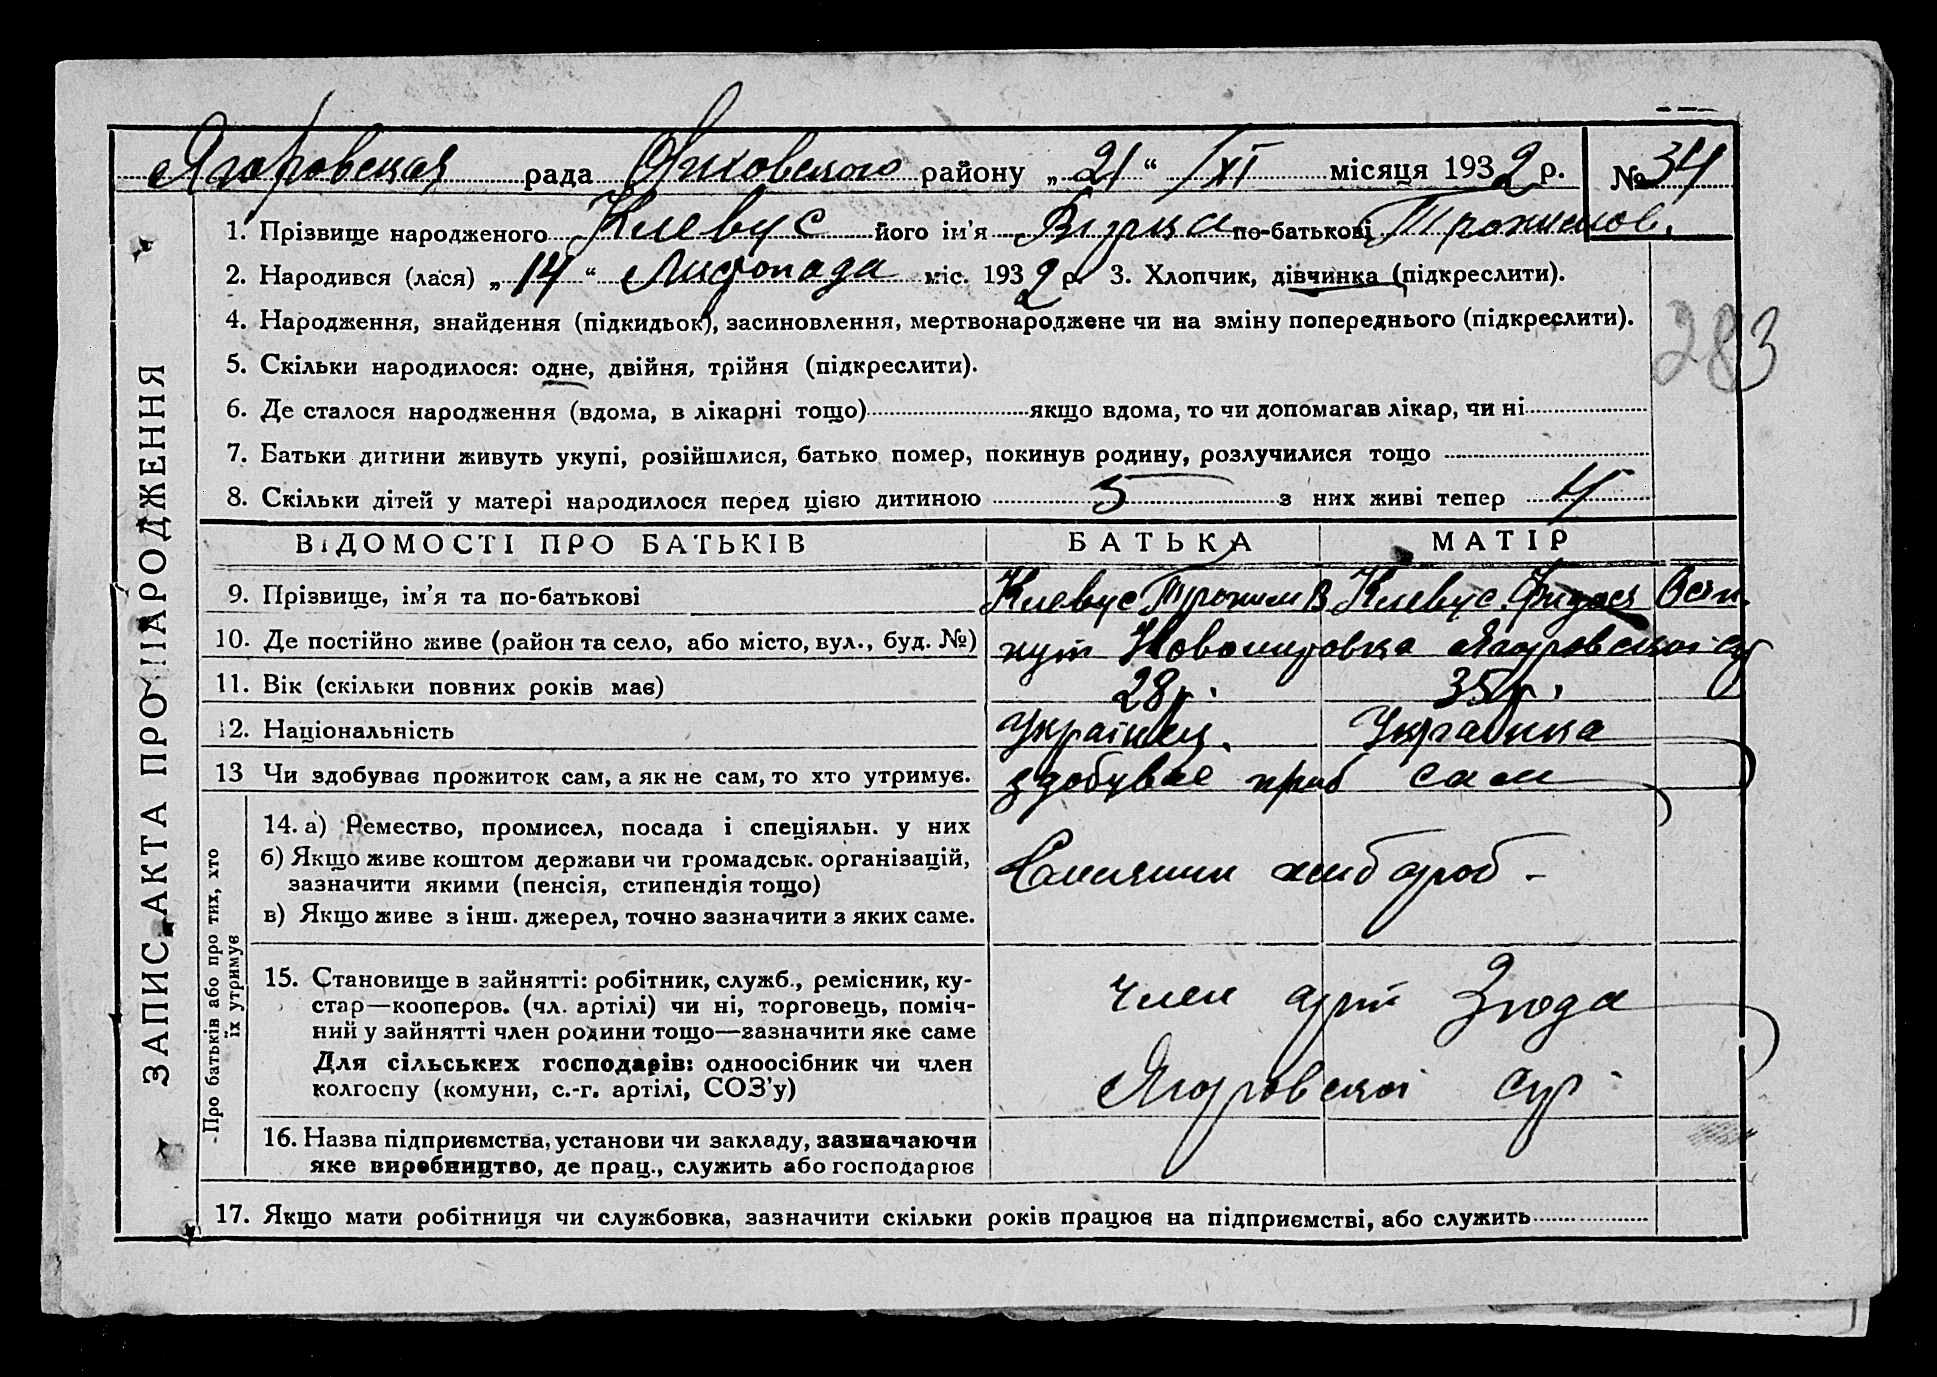 Ягоровская рада Онуховского району „21“ /XI місяця 1932 р. № 34
1. Прізвище народженого Клевус його ім'я по-батькові Трохимов.
2. Народився (лася) „14“ Листопада міс. 1932 р. 3. Хлопчик, дівчинка (підкреслити).
4. Народження, знайдення (підкидьок), засиновлення, мертвонароджене чи на зміну попереднього (підкреслити).
283
5. Скільки народилося: одне, двійня, трійня (підкреслити).
6. Де сталося народження (вдома, в лікарні тощо) якщо вдома, то чи допомагав лікар, чи ні
7. Батьки дитини живуть укупі, розійшлися, батько помер, покинув родину, розлучилися тощо
8. Скільки дітей у матері народилося перед цією дитиною 5 з них живі тепер 4
ВІДОМОСТІ ПРО БАТЬКІВ БАТЬКА МАТІР
9. Прізвище, ім'я та по-батькові Клевус Трохим В Клевус
10. Де постійно живе (район та село, або місто, вул., буд. №) хут Ягоровської с/р
11. Вік (скільки повних років має) 28 р. 35 р.
12. Національність Українец. Українка
13 Чи здобуває прожиток сам, а як не сам, то хто утримує. здобуває сам
14. а) Ремество, промисел, посада і спеціяльн. у них
б) Якщо живе коштом держави чи громадськ. організацій,
зазначити якими (пенсія, стипендія тощо)
Селянин хлібороб -
в) Якщо живе з інш. джерел, точно зазначити з яких саме.
15. Становище в зайнятті: робітник, служб., ремісник, ку-
стар—кооперов. (чл. артілі) чи ні, торговець, поміч-
ний у зайнятті член родини тощо—зазначити яке саме
Для сільських господарів: одноосібник чи член
колгоспу (комуни, с.-г. артілі, СОЗ'у)
член арт Згода
Ягоровської с/р
16. Назва підприємства, установи чи закладу, зазначаючи
яке виробництво, де прац., служить або господарює
17. Якщо мати робітниця чи службовка, зазначити скільки років працює на підприємстві, або служить
ЗАПИС АКТА ПРО НАРОДЖЕННЯ
Про батьків або про тих, хто
їх утримує